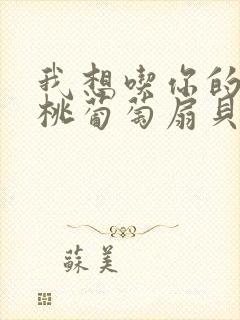 我想喫你的
桃葡萄扇貝
蘇美